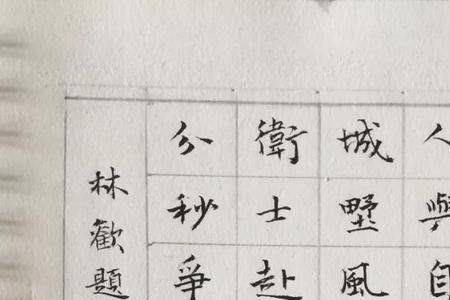 人與自
城墅風
衛士赴
分秒爭
林歡題